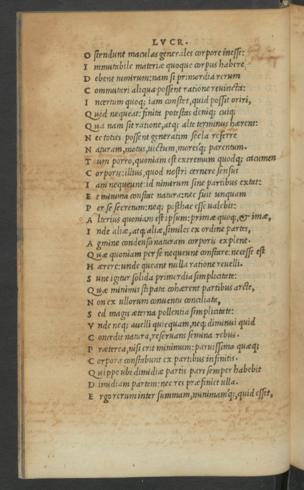 LVCR.
O stendunt maculas generales corpore inesse:
I mmutabile materiæ quoque corpus habere
D ebent nimirum: nam si primordia rerum
C ommutari aliqua possent ratione reuincta:
I ncertum quoq; iam constet, quid possit oriri,
Q uid nequeat: finita potestas deniq; cuiq;
Q ua nam sit ratione, atq; alte terminus hærens:
N ec toties possent generatim secla referre
N aturam, motus, uictum, moresq; parentum.
T um porro, quoniam est extremum quodq; cacumen
C orporis illius, quod nostri cernere sensus
I am nequeunt: id nimirum sine partibus extat:
E t minima constat natura: nec fuit unquam
P er se secretum: neq; posthac esse ualebit:
A lterius quoniam est ipsum: primaq; quoq, & imæ,
I nde aliæ, atq, aliæ, similes ex ordine partes,
A gmine condenso naturam corporis explent.
Q uæ quoniam per se nequeunt constare: necesse est
H ærere: unde queant nulla ratione reuelli.
S unt igitur solida primordia simplicitate:
Q uæ minimis stipata cohærent partibus arcte,
N on ex ullorum conuentu conciliata,
S ed magis æterna pollentia simplicitate:
V nde neq; auelli quicquam, neq; diminui quid
C oncedit natura, reseruans semina rebus.
P ræterea, nisi erit minimum: paruissima quæq;
C orpora constabunt ex partibus infinitis.
Q uippe ubi dimidiæ partis pars semper habebit
D imidiam partem: nec res præfiniet ulla.
E rgo rerum inter summam, minimamq;, quid esset,